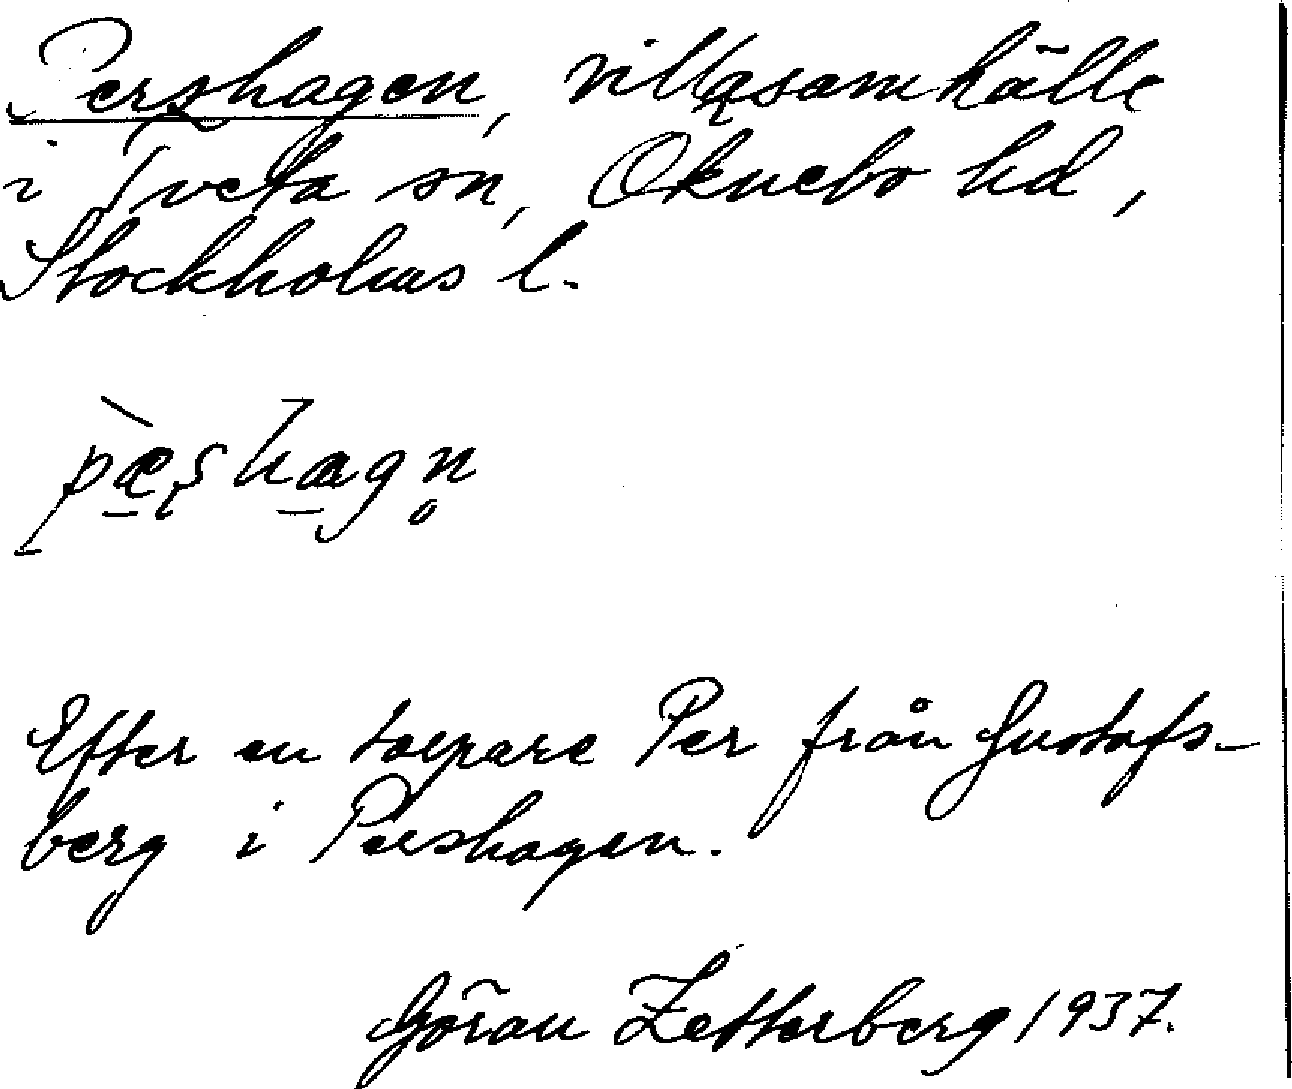 Pershagen, villasamhälle
i Tveta sn, Öknebo hd,
Stockholms l.
pæ̀ʂhagn̥
Efter en torpare Per från Gustafs-
berg i Pershagen.
Göran Zetterberg 1937.